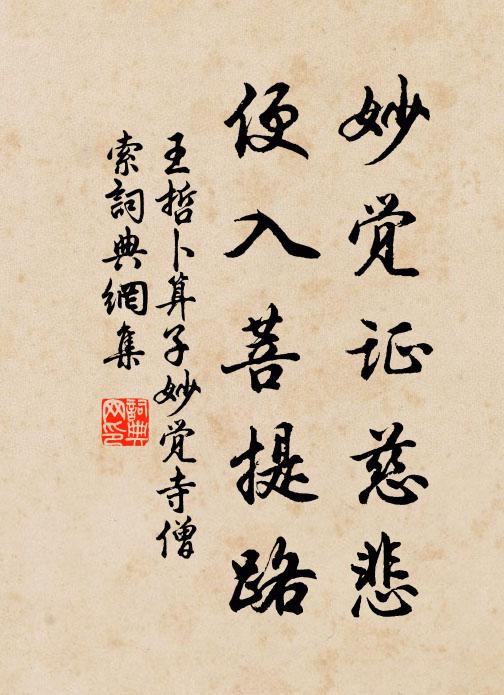 妙觉证慈悲
便入菩提路
王哲卜算子妙觉寺僧
索詞典網集
詞典网印